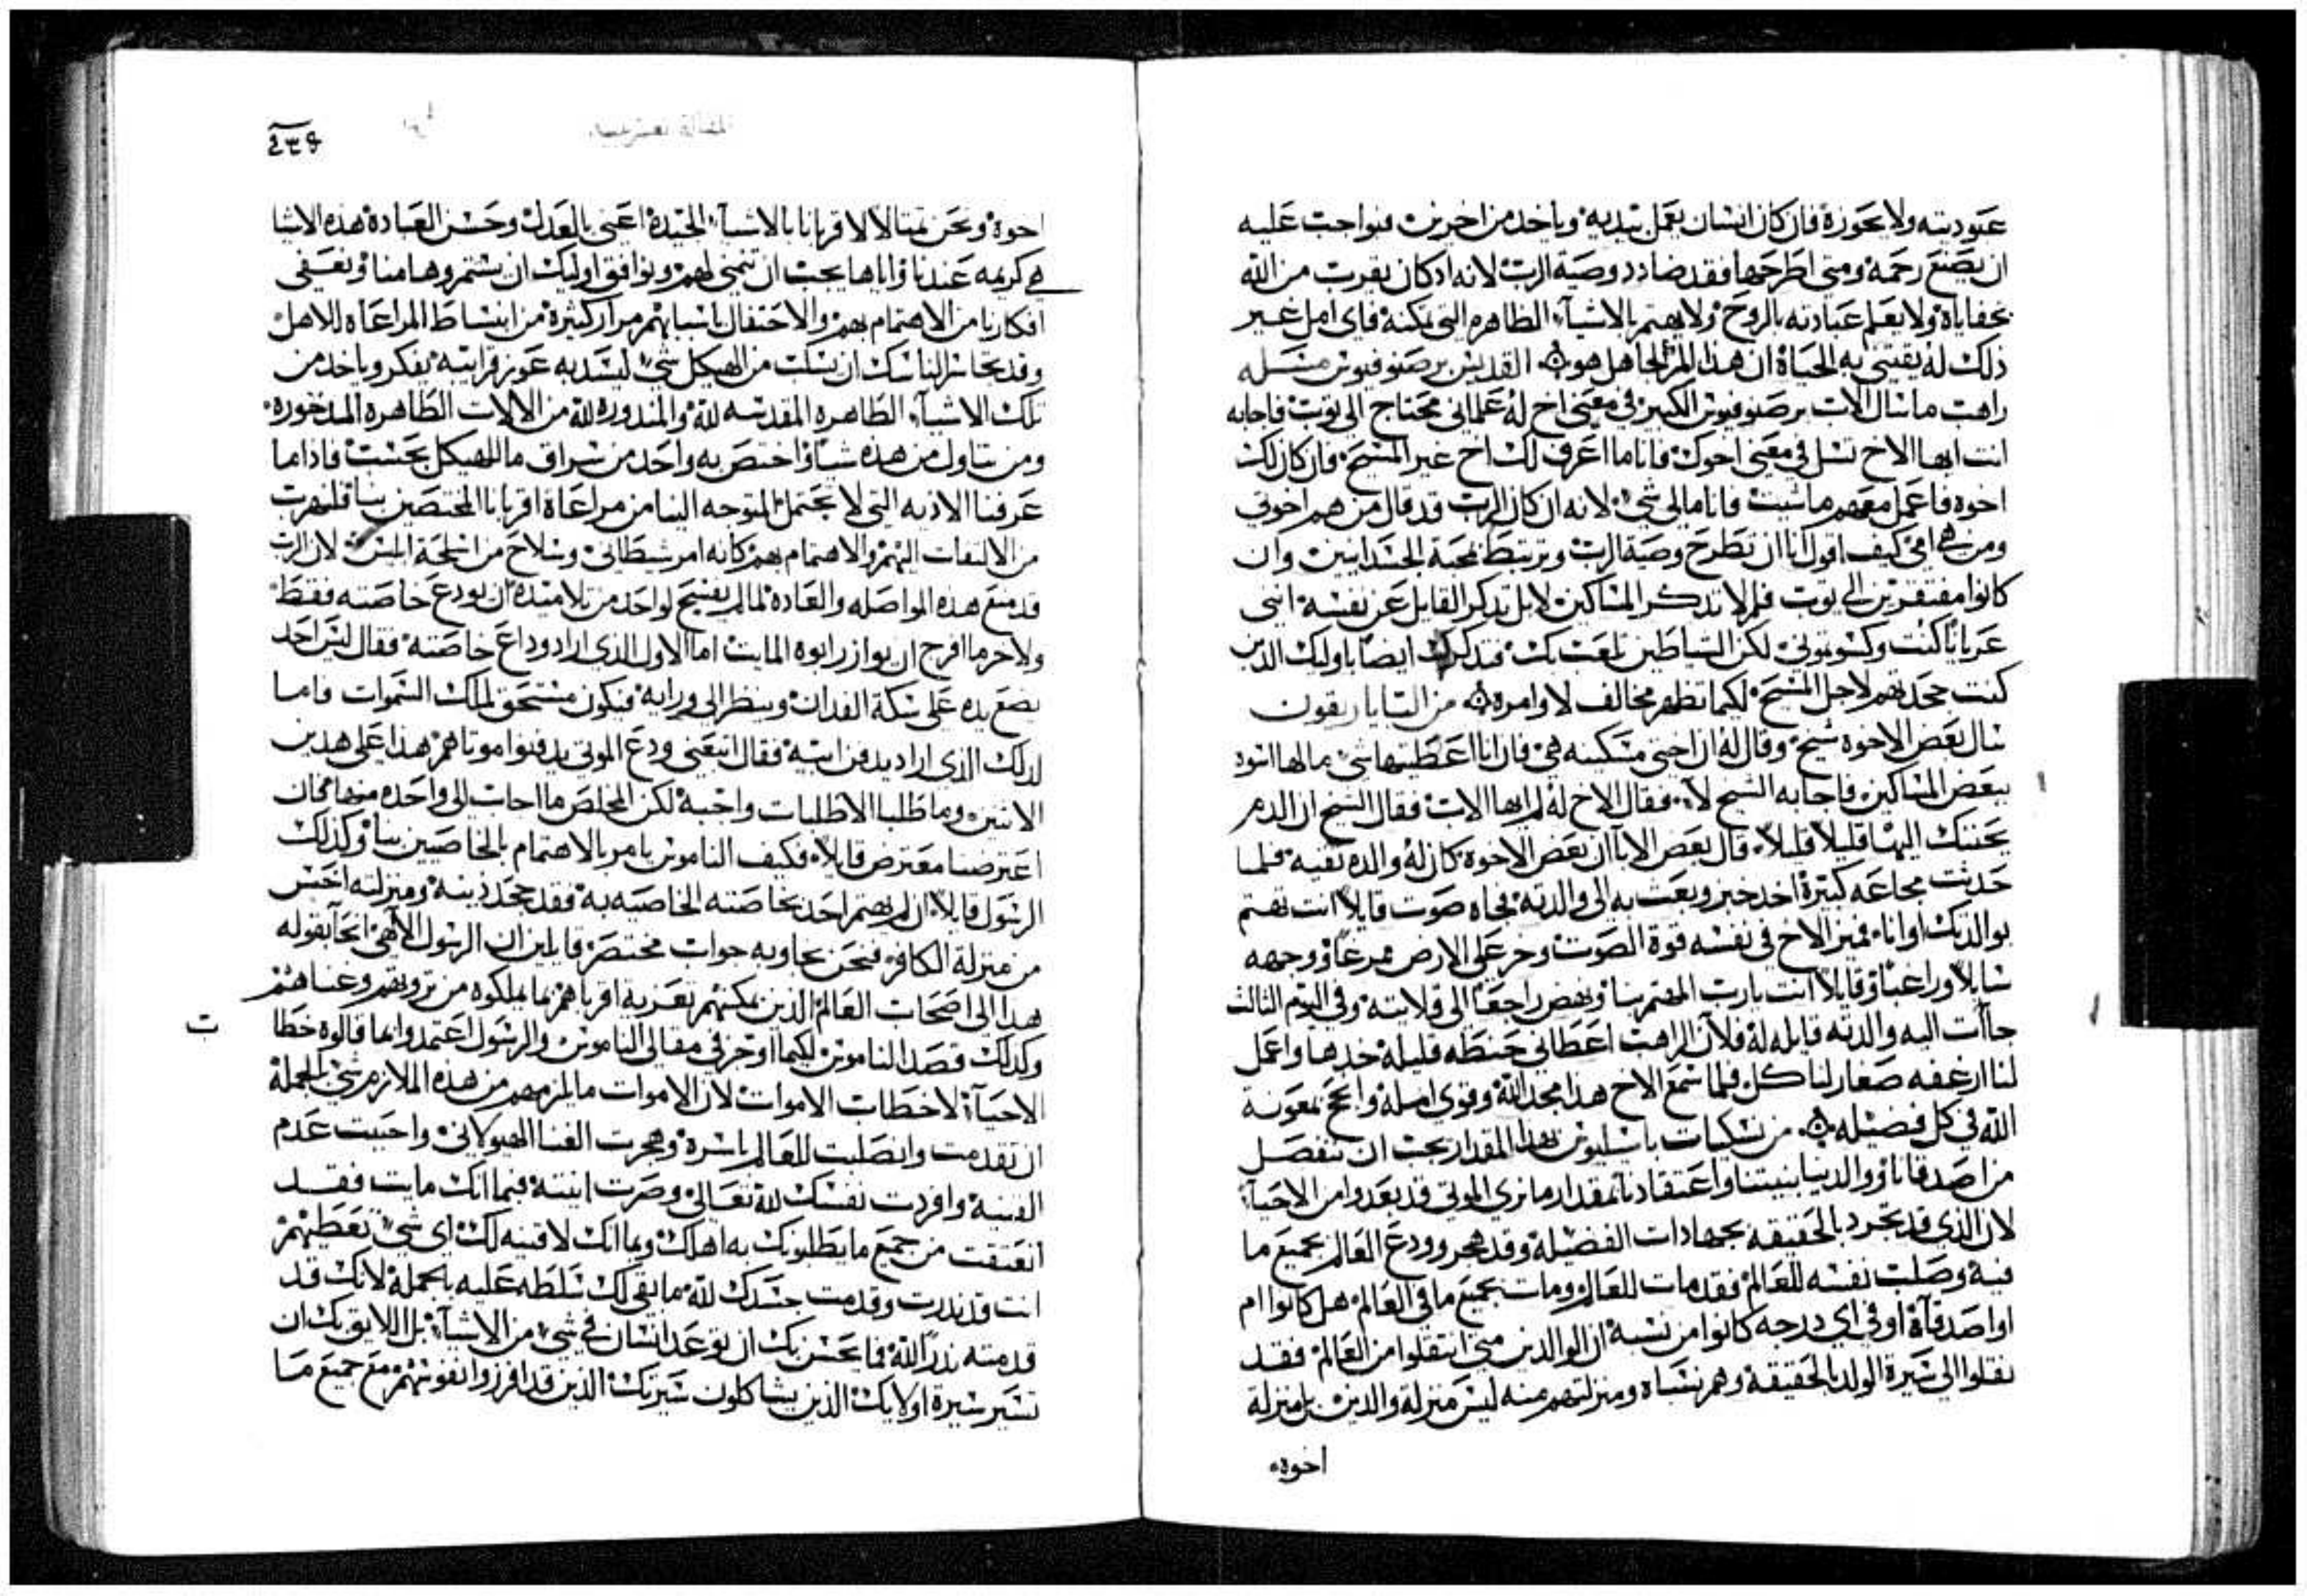 عبوديته ولا يحوزة فان كان انسان يعمل بيديه وياخد من اخرين فواجب عليه
ان يصنع رحمة ومتى اطرحها فقد ضادد وصية الرب لانه ادكان يقرب من الله
بخفاياه ولا يعلم عبادته بالروح ولا يهتم بالاشيآ الظاهره التي تمكنة فاى امل غير
ذلك له يقتني به الحياة ان هذا المر لجاهل هو القديس برصنوفيوس مسله
راهب ما سال الاب برصنوفيوس الكبير في معنى اخ له علمانى محتاج الى توب فاجابه
انت ايها الاخ تسل في معنى اخوك فانا ما اعرف لك اخ غير المسيح فان كان لك
اخوه فاعمل معهم ما شيت فانا مالي شي لانه ان كان الرب قد قال من هم اخوتي
ومن هي امي كيف اقول انا ان تطرح وصية الرب وترتبط بمحبة الجسدانيين وان
كانوا مفتقرين الى توب فلم لا تدكر المساكين لا بل تدكر القايل عن نفسه انني
عريانا كنت وكسوتموني لكن الشياطين تلعب بك فتدكرك ايضا باوليك الدين
كنت جحدتهم لاجل المسيح لكيما تظهر مخالف لاوامره من
سال بعض الاخوه شيخ وقال له ان اختي مسكينه هي فان انا اعطيتها شي مالها اسوه
ببعض المساكين فاجابه الشيخ لا فقال الاخ له لم ايها الاب فقال الشيخ ان الدم
يحننك اليها قليلا قليلا قال بعض الابآ ان بعض الاخوة كان له والده تقيه فلما
حدثت مجاعه كبيرة اخد خبز وبعث به الى والدته فجاه صوت قايلا انت تهتم
بوالدتك او انا فميز الاخ في نفسه قوة الصوت وخر على الارض ممرغا وجهه
سايلا وراغبا وقايلا انت يارب المهتم بنا ونهض راجعا الى قلايته وفي اليوم الثالث
جاات اليه والدته قايله له فلان الراهب اعطاني حنطه قليله خدها واعمل
لنا ارغفه صغار لناكل فلما سمع الاخ هذا مجد الله وقوى امله وانجح بمعونة
الله في كل فضيله من نسكيات باسيليوس بهذا المقدار يجب ان ننفصل
من اصدقانا ووالدينا بنيتنا واعتقادنا بمقدار ما نري الموتي قد بعدوا من الاحيآ
لان الذي قد تجرد بالحقيقه بجهادات الفضيلة وقد هجر وودع العالم بجميع ما
فيه وصلب نفسه للعالم فقد مات للعالم ومات بجميع ما في العالم هل كانوا ام
او اصدقآة او في اي درجه كانوا من نسبة ان الوالدين متي انتقلوا من العالم فقد
نقلوا الى سيرة الولد بالحقيقة وهم نسباه ومنزلتهم منه ليس منزلة والدين بل منزلة
اخوة
٤٣٤
اخوة ونحن نمتالا لاقربانا بالاشيآ الحيدة اعني بالعدل وحسن العبادة هذه الاشيا
هي كريمه عندنا واياها يجب ان نتمني لهم ونوافق اوليك ان يستمروها منا ونعفي
افكارنا من الاهتمام بهم والاحتفال باسبابهم مرار كثيرة من انبساط المراعاه للاهل
وقد تجاسر الناسك ان يسلب من الهيكل شي ليسد به عوز قرايبه يفكر وياخد من
تلك الاشيآ الطاهره المقدسه لله والمندوره لله من الالات الطاهره المدخوره
ومن تناول من هذه شيا واختص به واحد من سراق ما للهيكل يحسب فاداما
عرفنا الاديه التي لا تحتمل المتوجه الينا من مراعاة اقربانا المختصين بنا فلنهرب
من الالتفات اليهم والاهتمام بهم كانه امر شيطانى وسلاح من اسلحة لان الرب
قد منع هذه المواصله والعادة لما لم يفسح لواحد من تلاميده ان يودع خاصته فقط
ولاخر ما افرج ان يوازر ابوه المايت اما الاول الدى اراد وداع خاصته فقال ليس احد
يضع يده على سكة الفدان وينظر الى ورايه فيكون مستحق لملك السموات واما
لدلك الذى اراد يدفن ابيه فقال اتبعني ودع الموتى يدفنوا موتاهم هذا على هدين
الاتنين وما طلبا الا طلبات واجبة لكن المخلص ما اجاب الى واحده منها فان
اعترضنا معترض قايلا فكيف الناموس يامر بالاهتمام بالخاصيين بنا وكذلك
الرسول قايلا ان لم يهتم احد بخاصته الخاصيه به فقد جحد دينة ومنزلته اخس
من منزلة الكافر فنحن نجاوبه جواب مختصر قايلين ان الرسول الالاهى انحا بقوله
هدا الى اصحاب العالم الذين يمكنهم تعزية اقرباهم بما يملكوه من تروتهم وغناهم
وكدلك قصد الناموس لكيما اوجز في مقالى الناموس والرسول اعتمدوا بما قالوه خطاب
الاحيآ لا خطاب الاموات لان الاموات ما يلزمهم من هذه الملازم شي بالجملة
ان تقدمت وانصلبت للعالم باسرة وهجرت الغنا الهيولانى واحببت عدم
القنية وافردت نفسك لله تعالى وصرت ابنته فبما انك مايت فقد
انعتقت من جميع ما يطلبونك به اهلك وبما انك لا قنيه لك اى شي تعطيهم
انت قد ندرت وقدمت جسدك لله فما بقي لك سلطه عليه بالجملة لانك قد
قدمته ندرا لله فما يحسن بك ان توعد انسان في شي من الاشيآ بل اللايق بك ان
تسير سيرة اولايك الذين يشاكلون سيرتك الذين قد افرزوا نفوسهم مع جميع ما